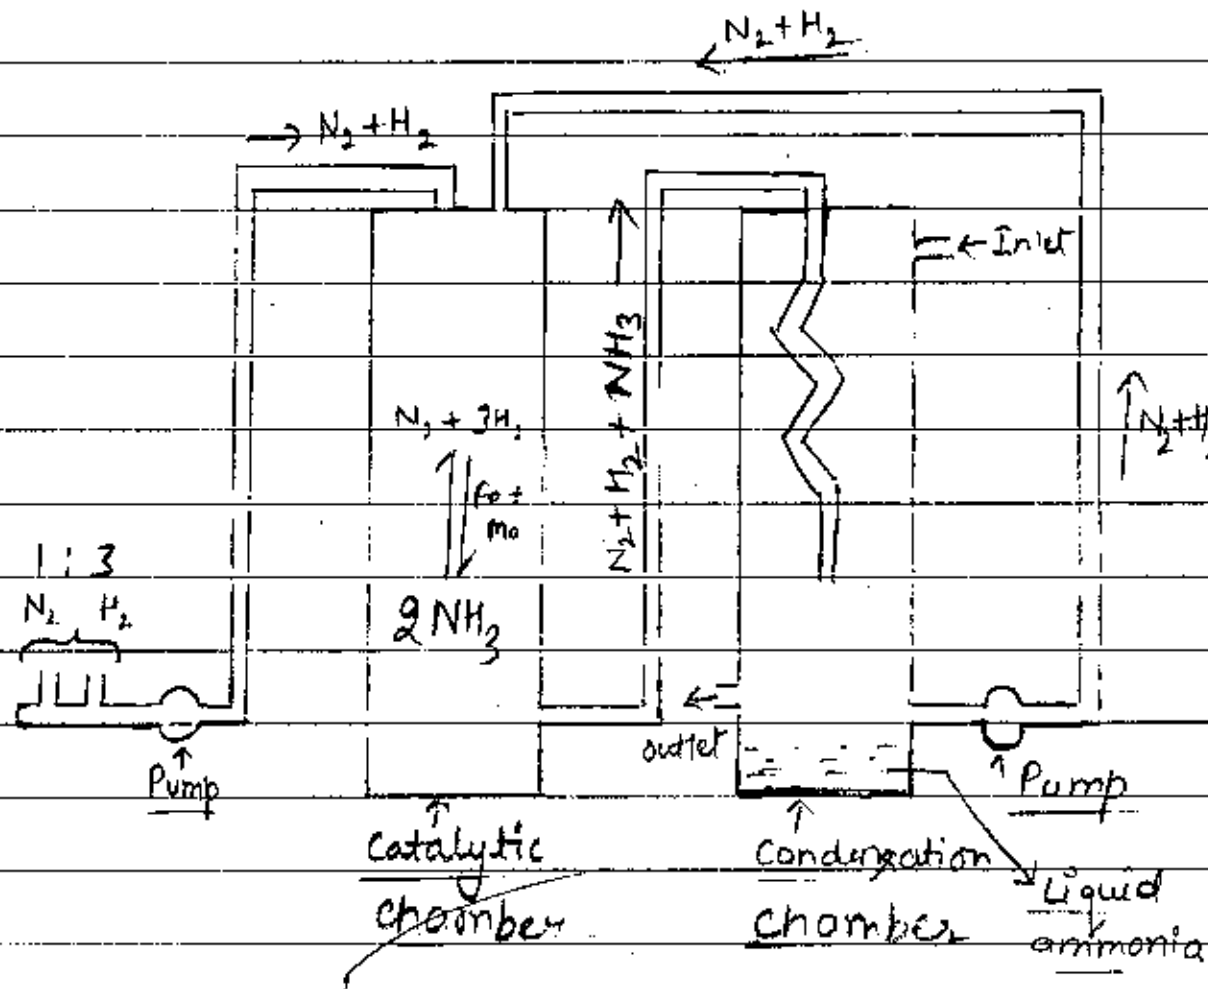 N₂ + H₂
N₂ + H₂
Inlet
N₂ + H₂ + NH₃
N₂ + 3H₂
Fe +
Mo
2 NH₃
N₂ + H₂
1 : 3
N₂ H₂
outlet
Pump
Pump
Catalytic
chamber
Condensation
chamber
Liquid
ammonia